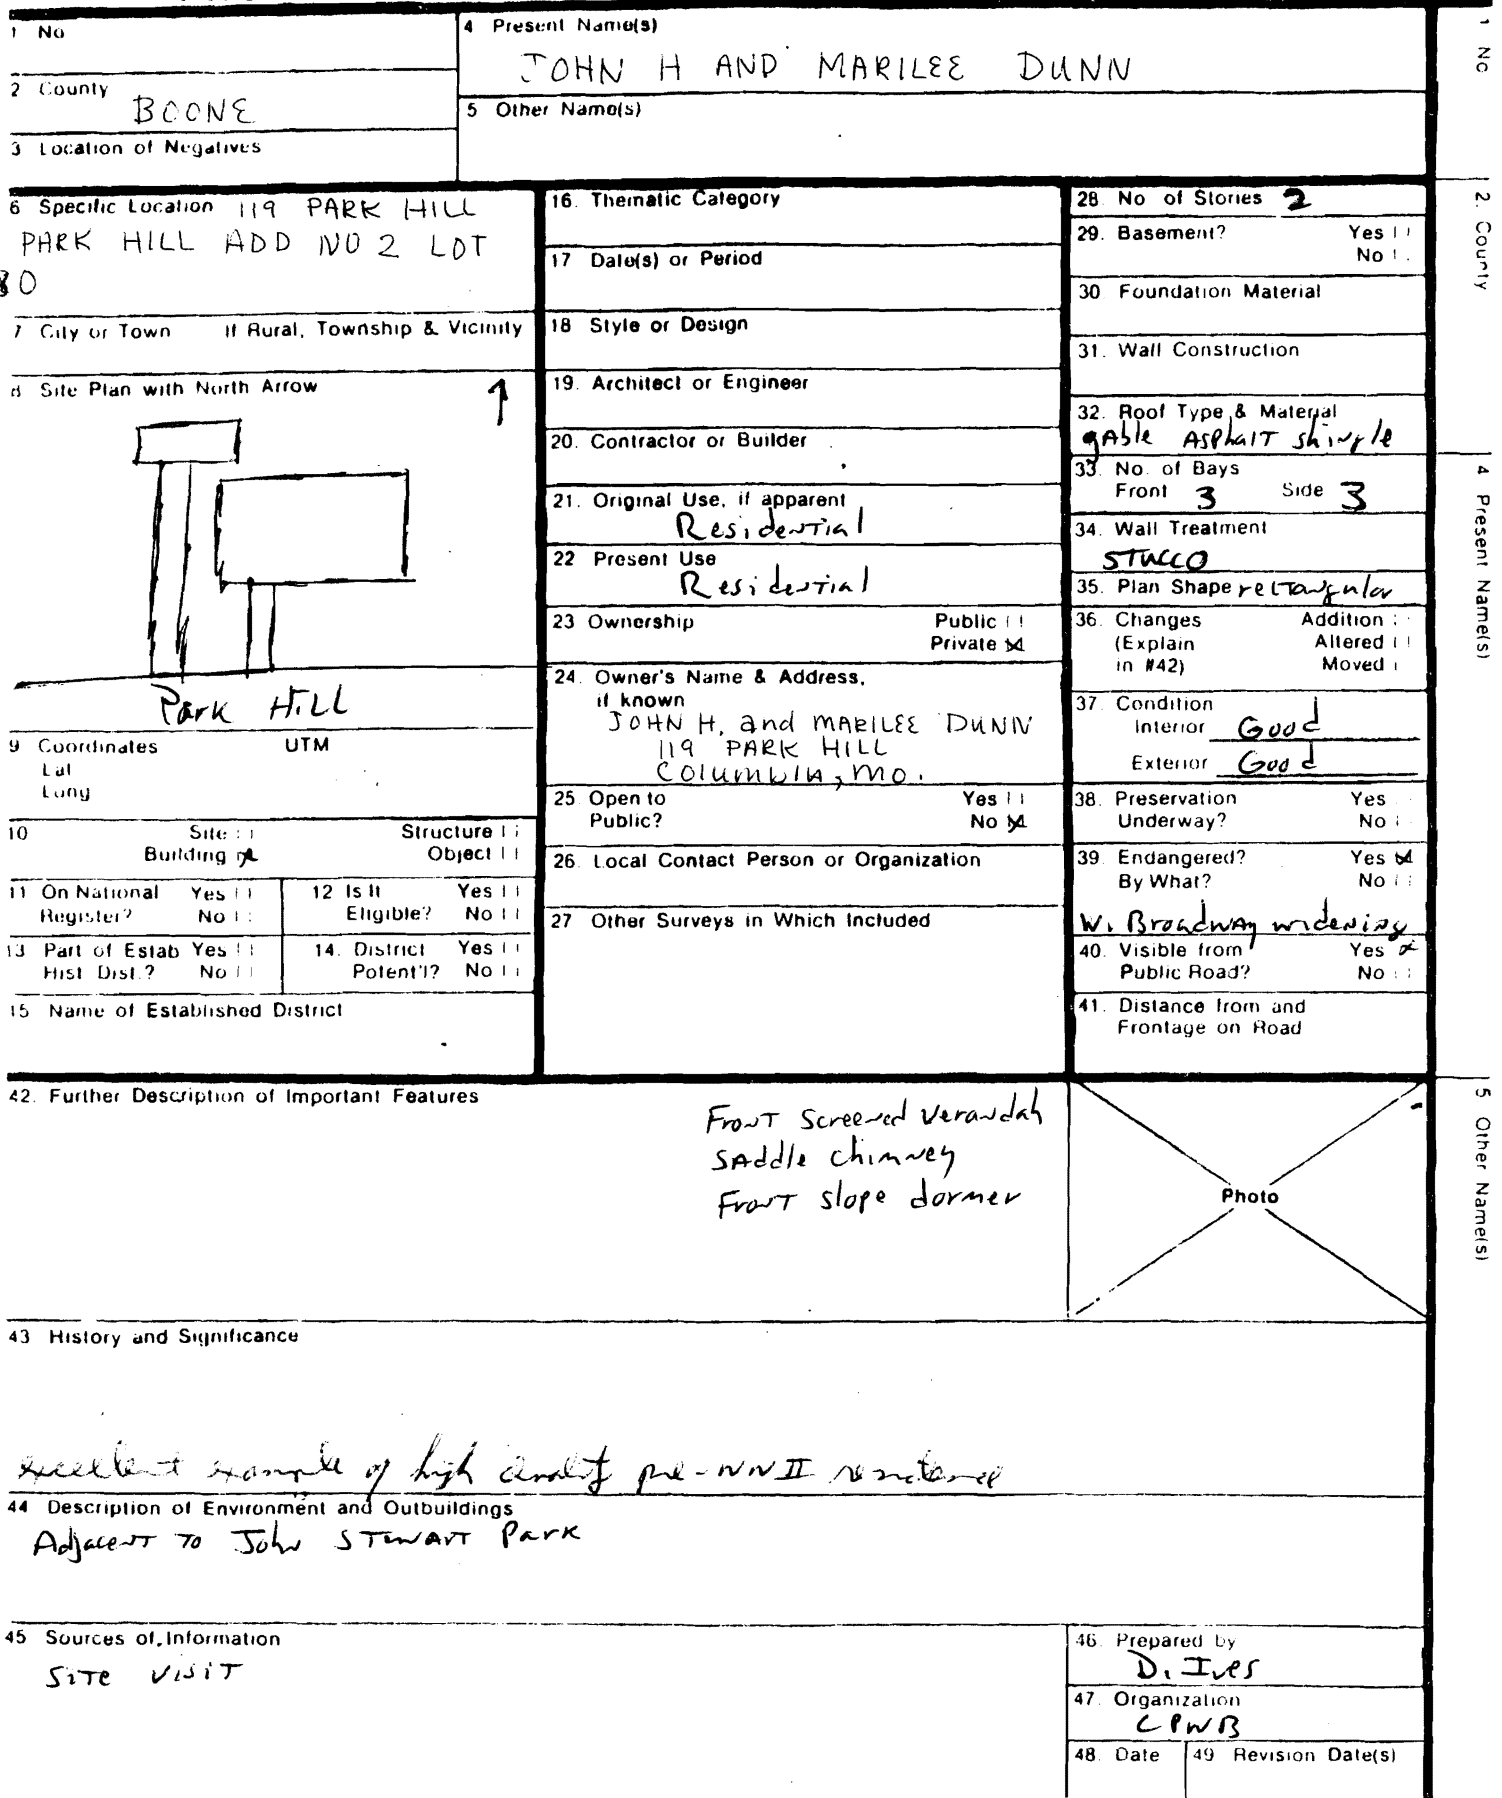 1 No
4 Present Name(s)
JOHN H AND MARILEE DUNN
2 County
BOONE
5 Other Name(s)
3 Location of Negatives
6 Specific Location 119 PARK HILL
PARK HILL ADD NO 2 LOT
80
7 City or Town If Rural, Township & Vicinity
8 Site Plan with North Arrow
Park Hill
9 Coordinates UTM
Lat
Long
10 Site
Structure
Building
Object
11 On National Register? Yes No
12 Is It Eligible? Yes No
13 Part of Estab Hist Dist.? Yes No
14. District Potent'l? Yes No
15 Name of Established District
16. Thematic Category
17 Date(s) or Period
18 Style or Design
19. Architect or Engineer
20. Contractor or Builder
21. Original Use, if apparent
Residential
22 Present Use
Residential
23 Ownership Public
Private
24. Owner's Name & Address,
if known
JOHN H. and MARILEE DUNN
119 PARK HILL
COLUMBIA, MO.
25. Open to Yes
Public? No
26. Local Contact Person or Organization
27 Other Surveys in Which Included
28. No of Stories 2
29. Basement? Yes
No
30 Foundation Material
31. Wall Construction
32. Roof Type & Material
gAble AsphalT shingle
33. No. of Bays
Front 3 Side 3
34. Wall Treatment
STUCCO
35. Plan Shape rectangular
36. Changes Addition
(Explain Altered
in #42) Moved
37. Condition
Interior Good
Exterior Good
38. Preservation Yes
Underway? No
39. Endangered? Yes
By What? No
W. Broadway widening
40. Visible from Yes
Public Road? No
41. Distance from and
Frontage on Road
42. Further Description of Important Features
Front Screened Verandah
SAddle chimney
Front slope dormer
Photo
43 History and Significance
excellent example of high quality pre-WWII residence
44 Description of Environment and Outbuildings
Adjacent to John Stewart Park
45 Sources of Information
Site visit
46. Prepared by
D. Ives
47. Organization
CPWB
48. Date
49 Revision Date(s)
1 No
2. County
4 Present Name(s)
5 Other Name(s)